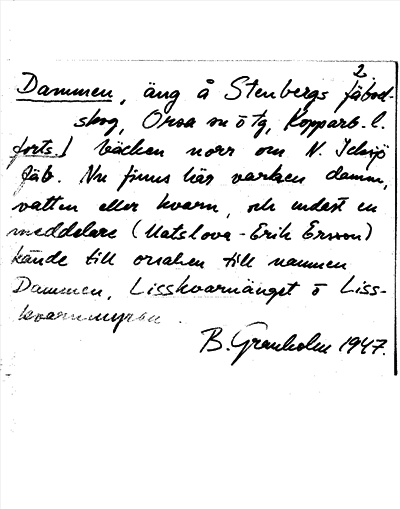 2.
Dammen, äng å Stenbergs fäbod-
skog, Orsa sn ö tg, Kopparb. l.
forts.] bäcken norr om N. Ickesjö
fäb. Nu finns här varken damm,
vatten eller kvarn, och endast en
meddelare (Matslova-Erik Ersson)
kände till orsaken till namnen
Dammen, Lisskvarnänget o Liss-
kvarnmyran.
B. Granholm 1947.